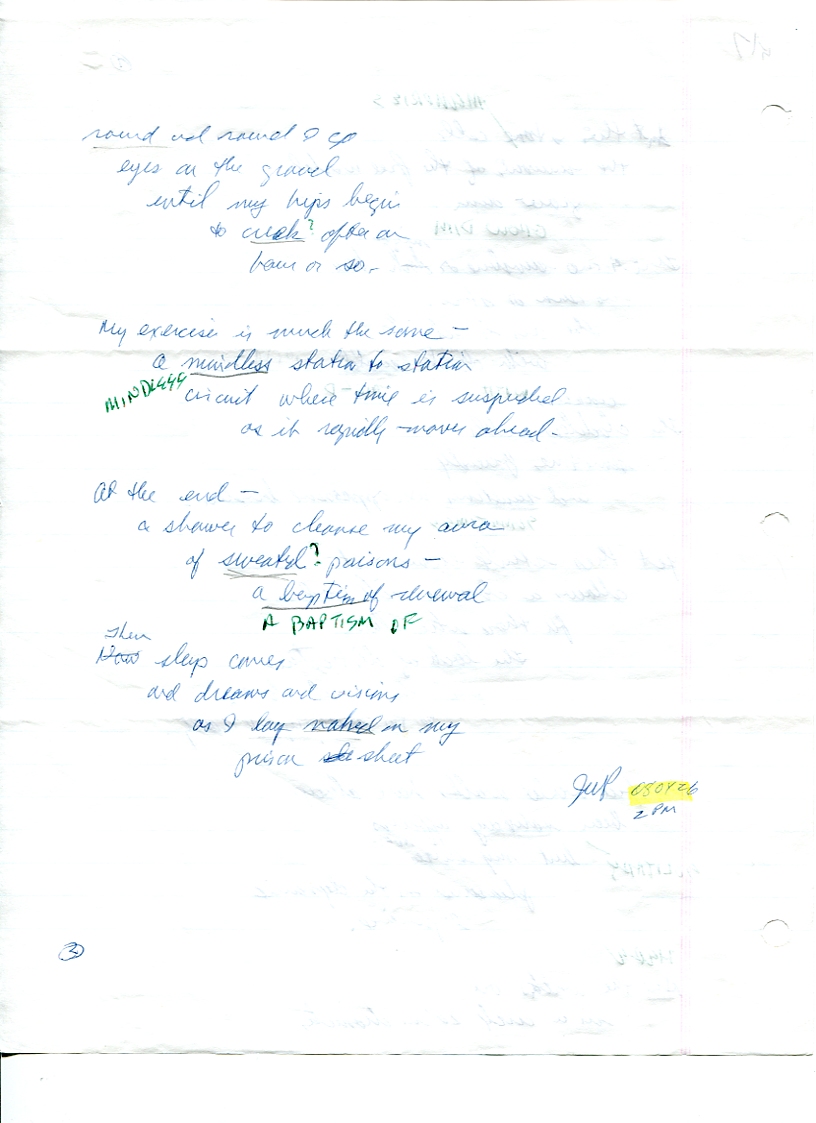 round and round I go
eyes on the gravel
until my hips begin
to creak? after an
hour or so.
My exercise is much the same —
a mindless station to station
MINDLESS
circuit where time is suspended
as it rapidly moves ahead.
At the end —
a shower to cleanse my aura
of sweated? poisons —
a baptism of renewal
A BAPTISM OF
Then
Now sleep comes
and dreams and visions
as I lay naked in my
prison sheet
080426
2 PM
2